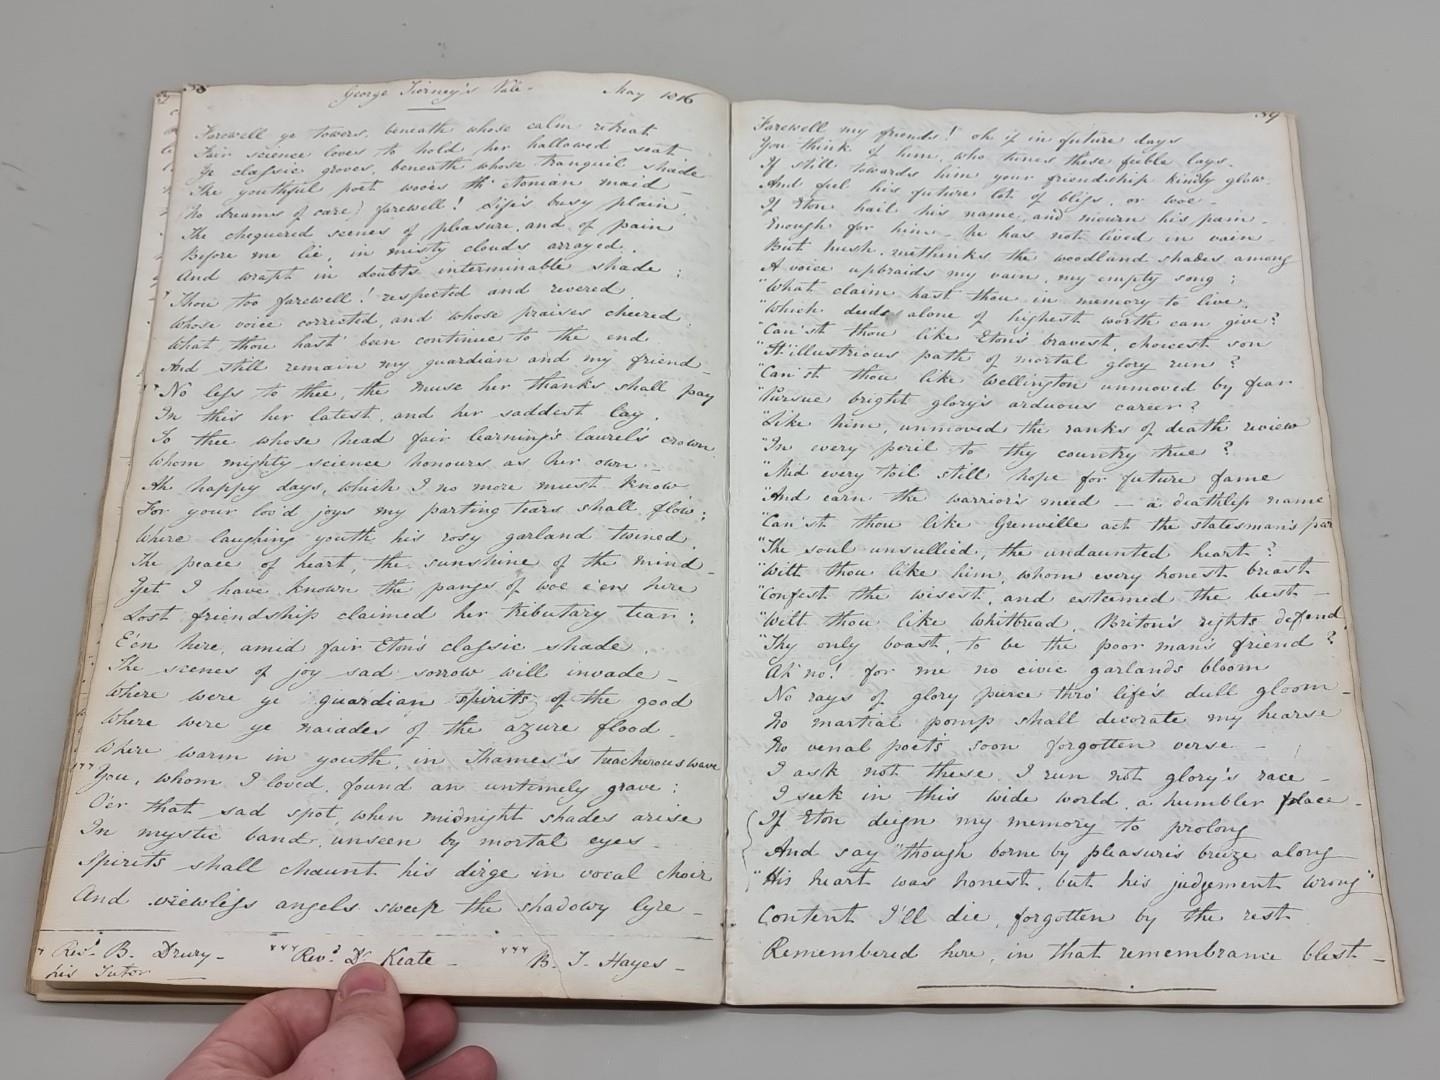 38
George Tierney's Vale - May 1816
Farewell ye towers, beneath whose calm retreat
Fair science loves to hold her hallowed seat.
Ye classic groves, beneath whose tranquil shade
The youthful poet wooes th' Etonian maid -
(No dreams of care) farewell! Life's busy plain
The chequered scenes of pleasure, and of pain
Before me lie, in misty clouds arrayed,
And wrapt in doubts interminable shade ;
Thou too farewell! respected and revered,
Whose voice corrected, and whose praises cheered ;
What thou hast been continue to the end
And still remain my guardian and my friend -
No less to thee, the muse her thanks shall pay
In this her latest, and her saddest lay.
To thee whose head fair learning's laurels crown
Whom mighty science honours as her own -
Ah happy days, which I no more must know
For your lov'd joys my parting tears shall flow ;
Where laughing youth his rosy garland twined,
The peace of heart, the sunshine of the mind -
Yet I have known the pangs of woe e'en here
Lost friendship claimed her tributary tear ;
E'en here, amid fair Eton's classic shade,
The scenes of joy sad sorrow will invade -
Where were ye guardian spirits of the good
Where were ye naiades of the azure flood -
Where warm in youth, in Thames's treacherous wave
You, whom I loved, found an untimely grave ;
O'er that sad spot, when midnight shades arise
In mystic band, unseen by mortal eyes -
Spirits shall chaunt his dirge in vocal choir
And viewless angels sweep the shadowy lyre -
Revd. B. Drury - Revd. Dr Keate - B. J. Hayes -
his Tutor -
39
Farewell my friends! oh if in future days
You think of him, who hines these feeble lays -
If still towards him your friendship kindly glow
And feel his future lot of bliss, or woe -
If Eton hail his name, and mourn his pain -
Enough for him - he has not lived in vain
But hush, methinks the woodland shades among
A voice upbraids my vain, my empty song ;
"What claim hast thou in memory to live,
"Which deeds alone of highest worth can give?
"Can'st thou like Eton's bravest, choicest son
"Th' illustrious path of mortal glory run ?
"Can'st thou like Wellington unmoved by fear
"Pursue bright glory's arduous career ?
"Like him, unmoved the ranks of death review
"In every peril to thy country true ?
"Mid every toil still hope for future fame
"And earn the warrior's meed - a deathless name
"Can'st thou like Grenville act the statesman's part
"The soul unsullied, the undaunted heart ?
"Wilt thou like him, whom every honest breast
"Confest the wisest, and esteemed the best -
"Wilt thou like Whitbread, Briton's rights defend,
"Thy only boast, to be the poor man's friend ?
Ah no! for me no civic garlands bloom
No rays of glory pierce thro' life's dull gloom -
No martial pomp shall decorate my hearse
No venal poet's soon forgotten verse -
I ask not these, I run not glory's race -
I seek in this wide world, a humbler place -
If Eton deign my memory to prolong
And say "though borne by pleasure's breeze along
"His heart was honest, but his judgement wrong"
Content I'll die, forgotten by the rest
Remembered here, in that remembrance blest -